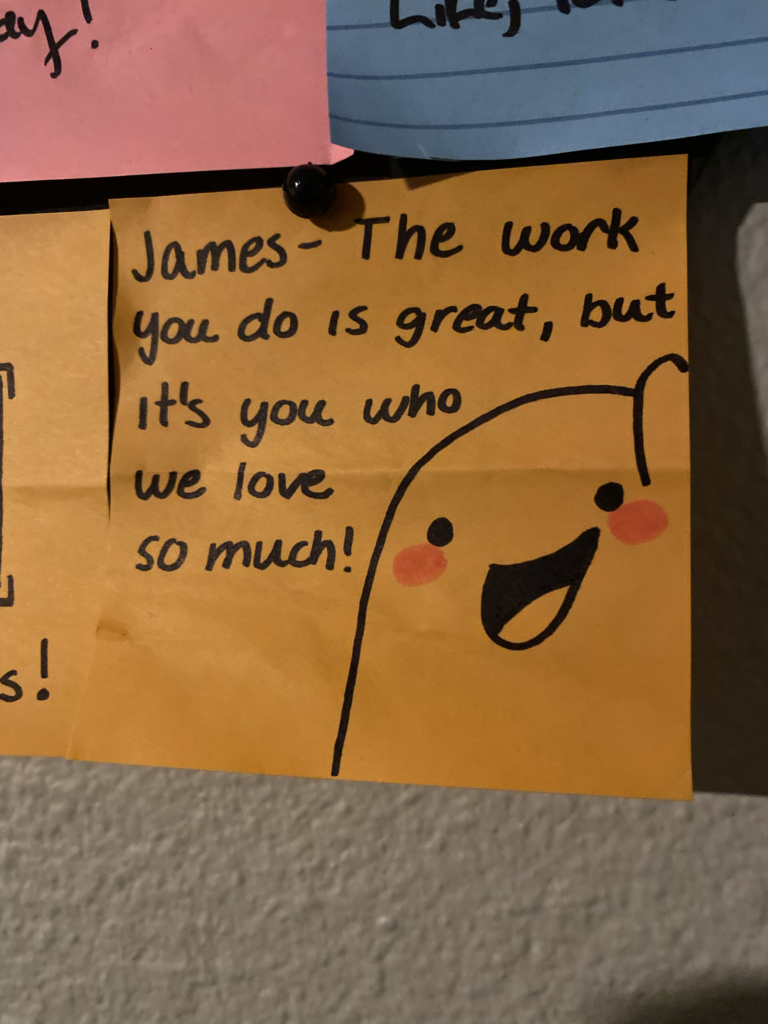 James- The work
you do is great, but
it's you who
we love
so much!